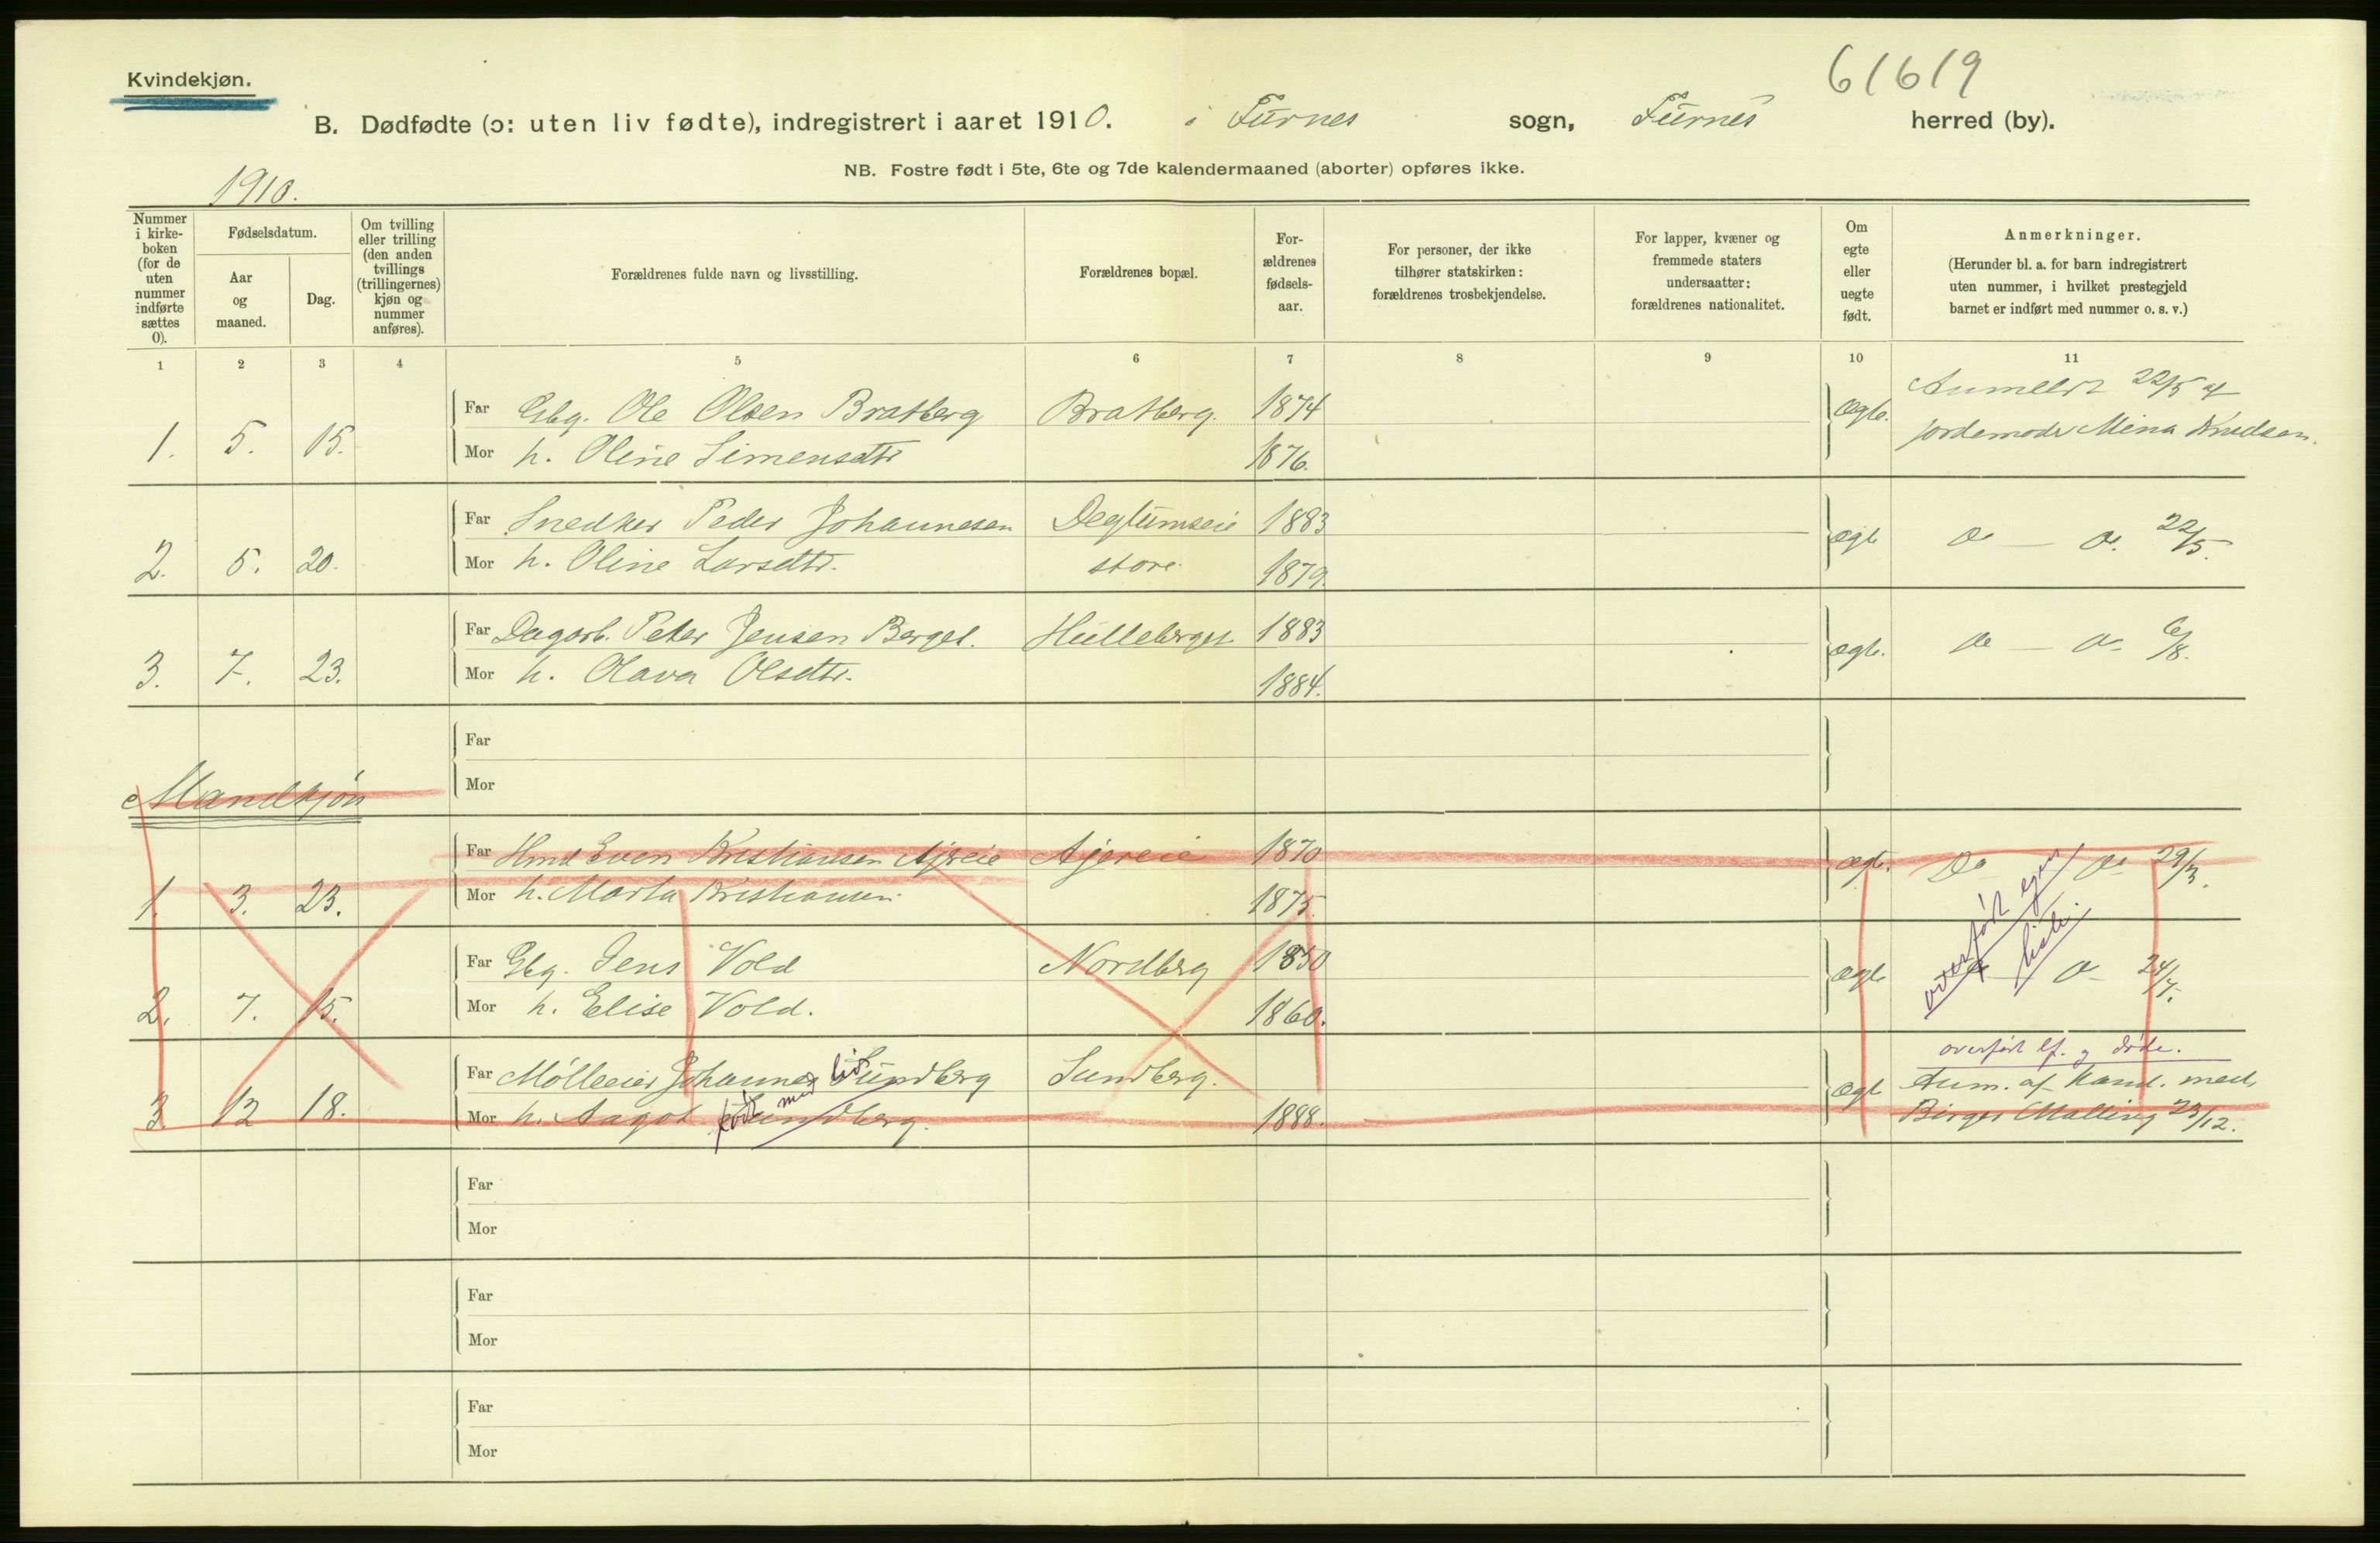 61619
Kvindekjøn.
B. Dødfødte (ɔ: uten liv fødte), indregistrert i aaret 1910. i Furnes sogn, Furnes herred (by).
NB. Fostre født i 5te, 6te og 7de kalendermaaned (aborter) opføres ikke.
1910.
Nummer i kirke-boken (for de uten nummer indførte sættes 0).
Fødselsdatum.
Aar og maaned.
Dag.
Om tvilling eller trilling (den anden tvillings (trillingernes) kjøn og nummer anføres).
Forældrenes fulde navn og livsstilling.
Forældrenes bopæl.
For-ældrenes fødsels-aar.
For personer, der ikke tilhører statskirken: forældrenes trosbekjendelse.
For lapper, kvæner og fremmede staters undersaatter: forældrenes nationalitet.
Om egte eller uegte født.
Anmerkninger.
(Herunder bl. a. for barn indregistrert uten nummer, i hvilket prestegjeld barnet er indført med nummer o. s. v.)
1 2 3 4 5 6 7 8 9 10 11
Far Gbg. Ole Olsen Bratberg Bratberg. 1874 ægte. Anmeldt 22/5 af
1. 5. 15. Mor h. Oline Simensdtr 1876. jordemoder Mina Knudsen.
Far Snedker Peder Johannesen Deglumseie 1883 ægte 22/5.
2. 5. 20. Mor h. Oline Larsdtr. store 1879.
Far Dagarb. Peter Jensen Berget. Hulleberget 1883 ægte. 6/8.
3. 7. 23. Mor h. Olava Olsdtr. 1884.
Far
Mor
Mandkjøn
Far Hmd Even Kristiansen Ajereie Ajereie 1870 ægte. Do Do 29/3.
1. 3. 23. Mor h. Marta Kristiansen 1875.
overført egen liste.
Far Gbg. Jens Vold Nordberg 1850 ægte 24/7.
2. 7. 15. Mor h. Elise Vold. 1860.
overført lf. g døde.
Far Mølleeier Johannes Sundberg Sundberg. ægte Anm. af Kand. med.
født med liv
3 12 18. Mor h. Aagot Sundberg. 1888. Birger Malling 23/12.
Far
Mor
Far
Mor
Far
Mor